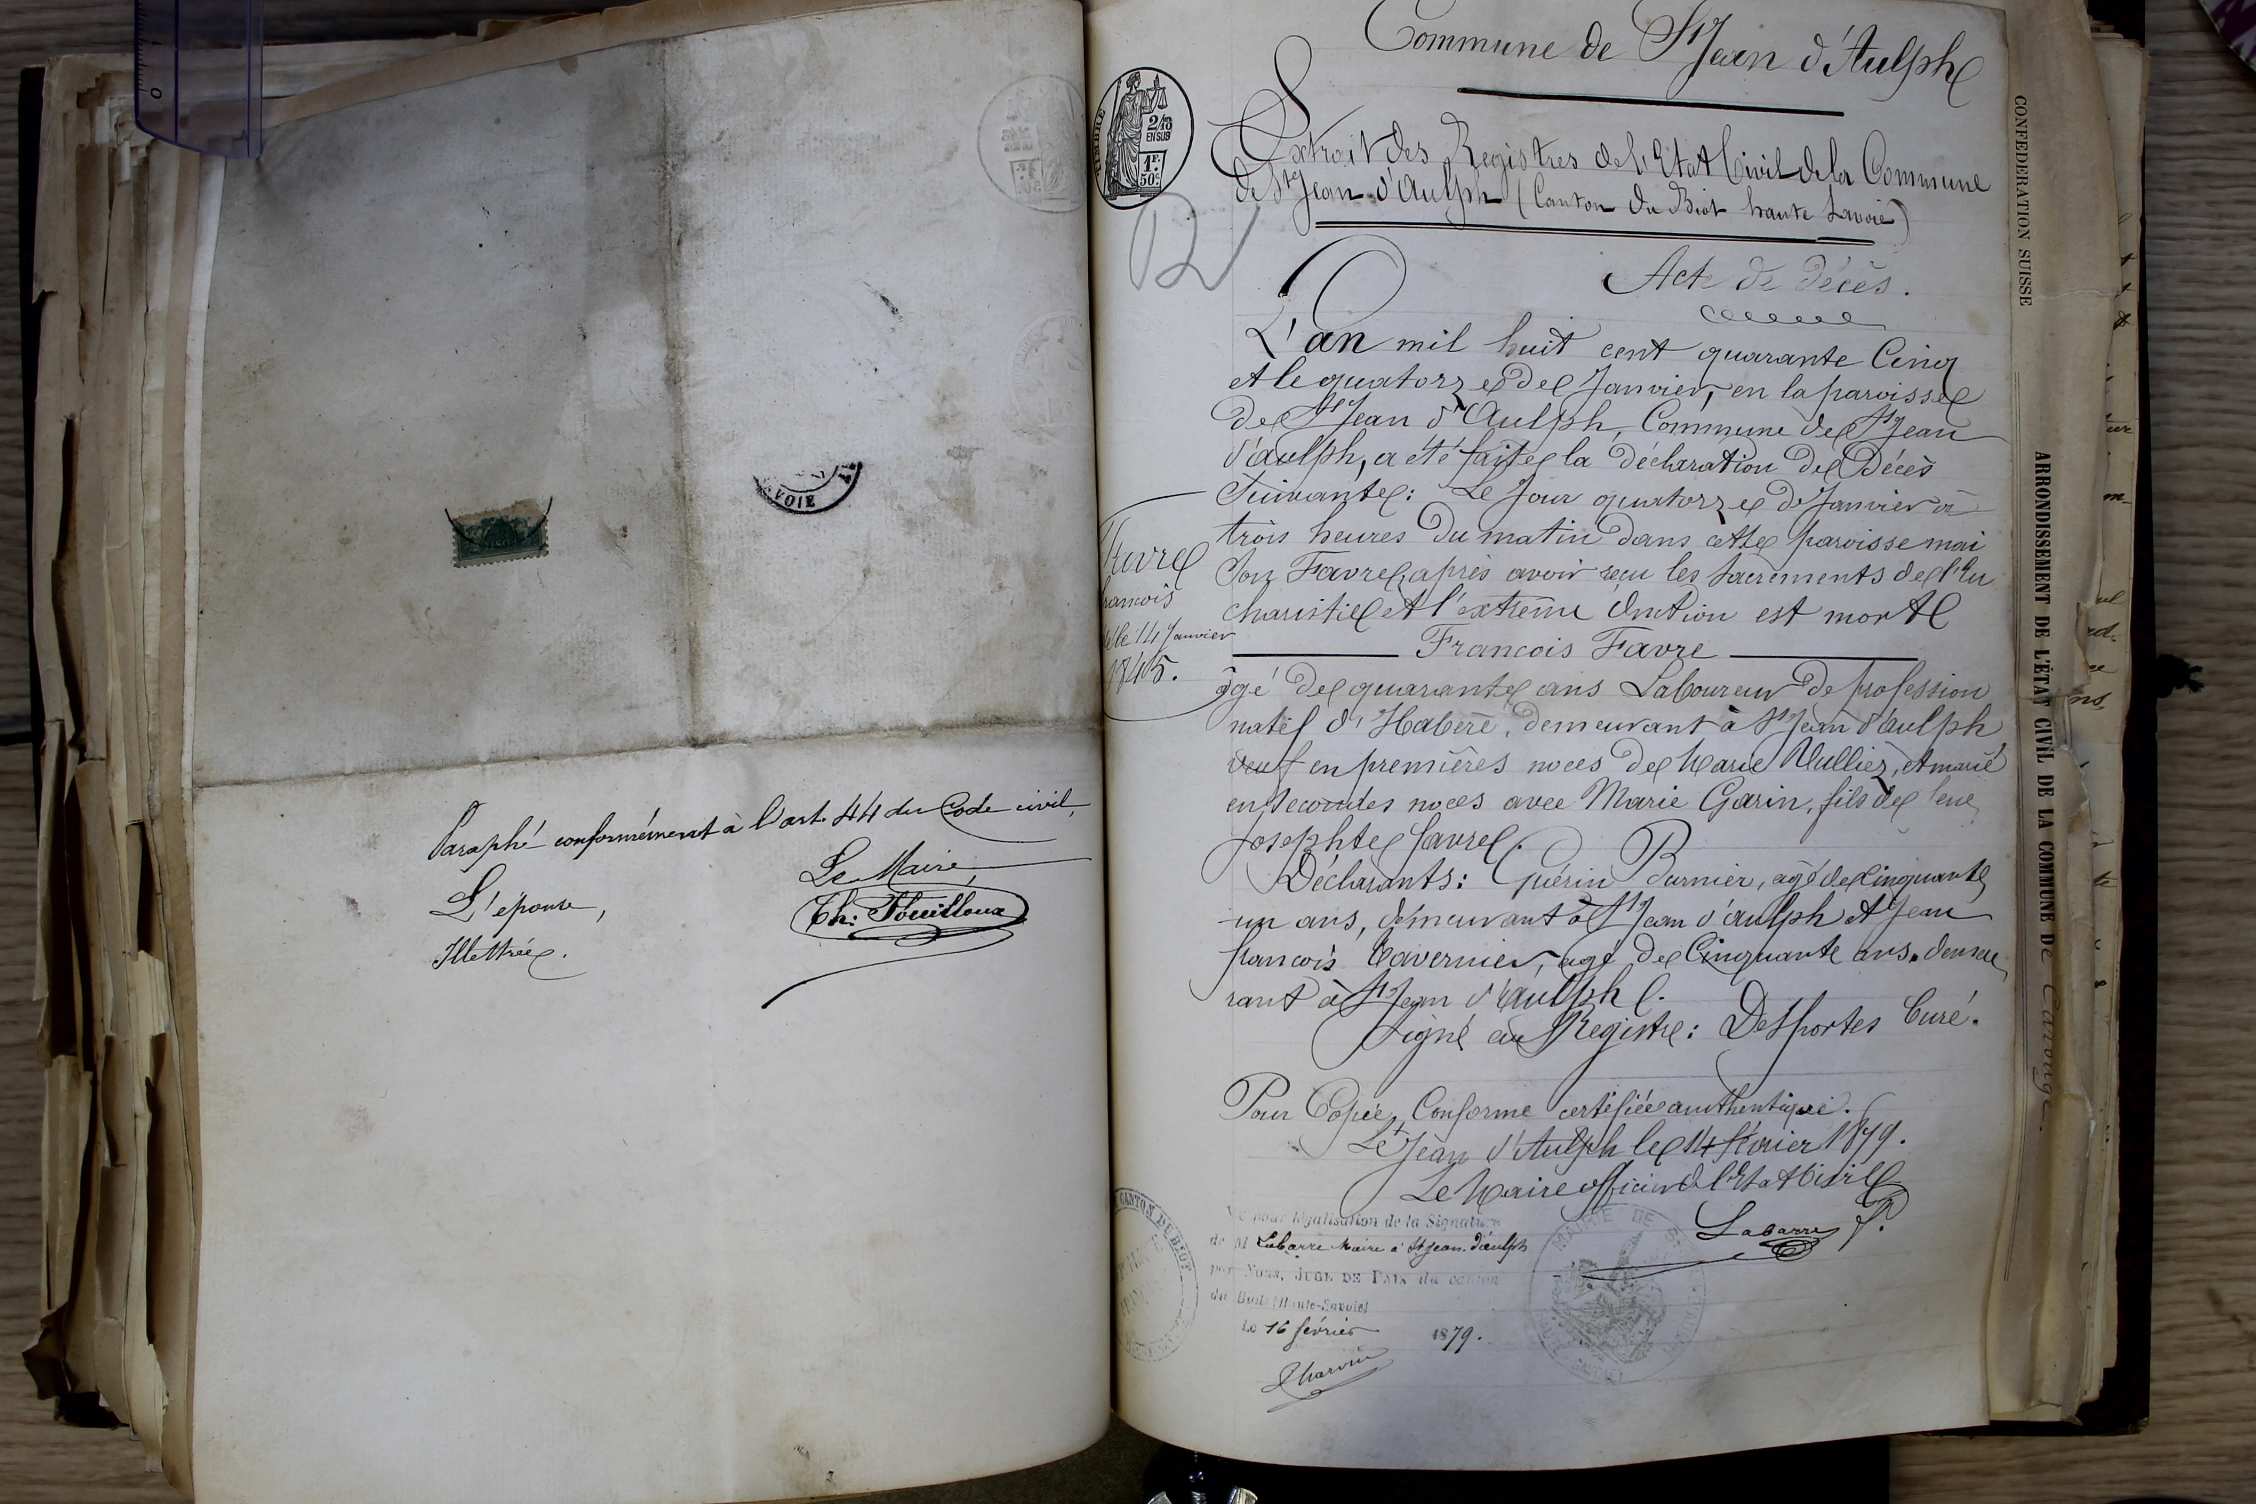 VOIE
Paraphé conformément à l'art. 44 du Code civil,
L'épouse,
Illettrée.
Le Maire,
Th: Fouilloux
Commune de St Jean d'Aulph
2/10
EN SUS
1F.
50c
Extrait des Registres de l'Etat Civil de la Commune
de St Jean d'Aulph (Canton du Biot haute Savoie)
Acte de décès.
L'an mil huit cent quarante Cinq
et le quatorze de Janvier, en la paroisse
de St Jean d'Aulph, Commune de St Jean
d'aulph, a été faite la déclaration de Décès
Suivante: Le Jour quatorze de Janvier à
trois heures du matin dans cette paroisse mai
son Favre, après avoir reçu les Sacrements de l'Eu
charistie et l'extrême Onction est mort
François Favre
âgé de quarante ans Laboureur de profession
natif d'Habère, demeurant à St Jean d'aulph
veuf en premières noces de Marie Vulliez, et marié
en secondes noces avec Marie Garin, fils de feu
Josephte favre.
Déclarants: Guérin Burnier, âgé de Cinquante
un ans, demeurant à St Jean d'aulph et Jean
françois Tavernier, âgé de Cinquante ans. demeu
rant à St Jean d'aulph.
Signé au Registre: Desportes Curé.
Favre
François
le 14 Janvier
1845.
Pour Copie Conforme certifiée authentique.
St Jean d'Aulph le 14 février 1879.
Le Maire officier de l'Etat Civil
Labarre f.
Vu pour légalisation de la Signature
de M Labarre Maire à St Jean d'aulph
par Nous, JUGE DE PAIX du canton
du Biot (Haute-Savoie)
Le 16 février 1879.
Charvin
CANTON DU BIOT
MAIRIE DE ST
CONFEDERATION SUISSE
ARRONDISSEMENT DE L'ÉTAT CIVIL DE LA COMMUNE De Carouge.